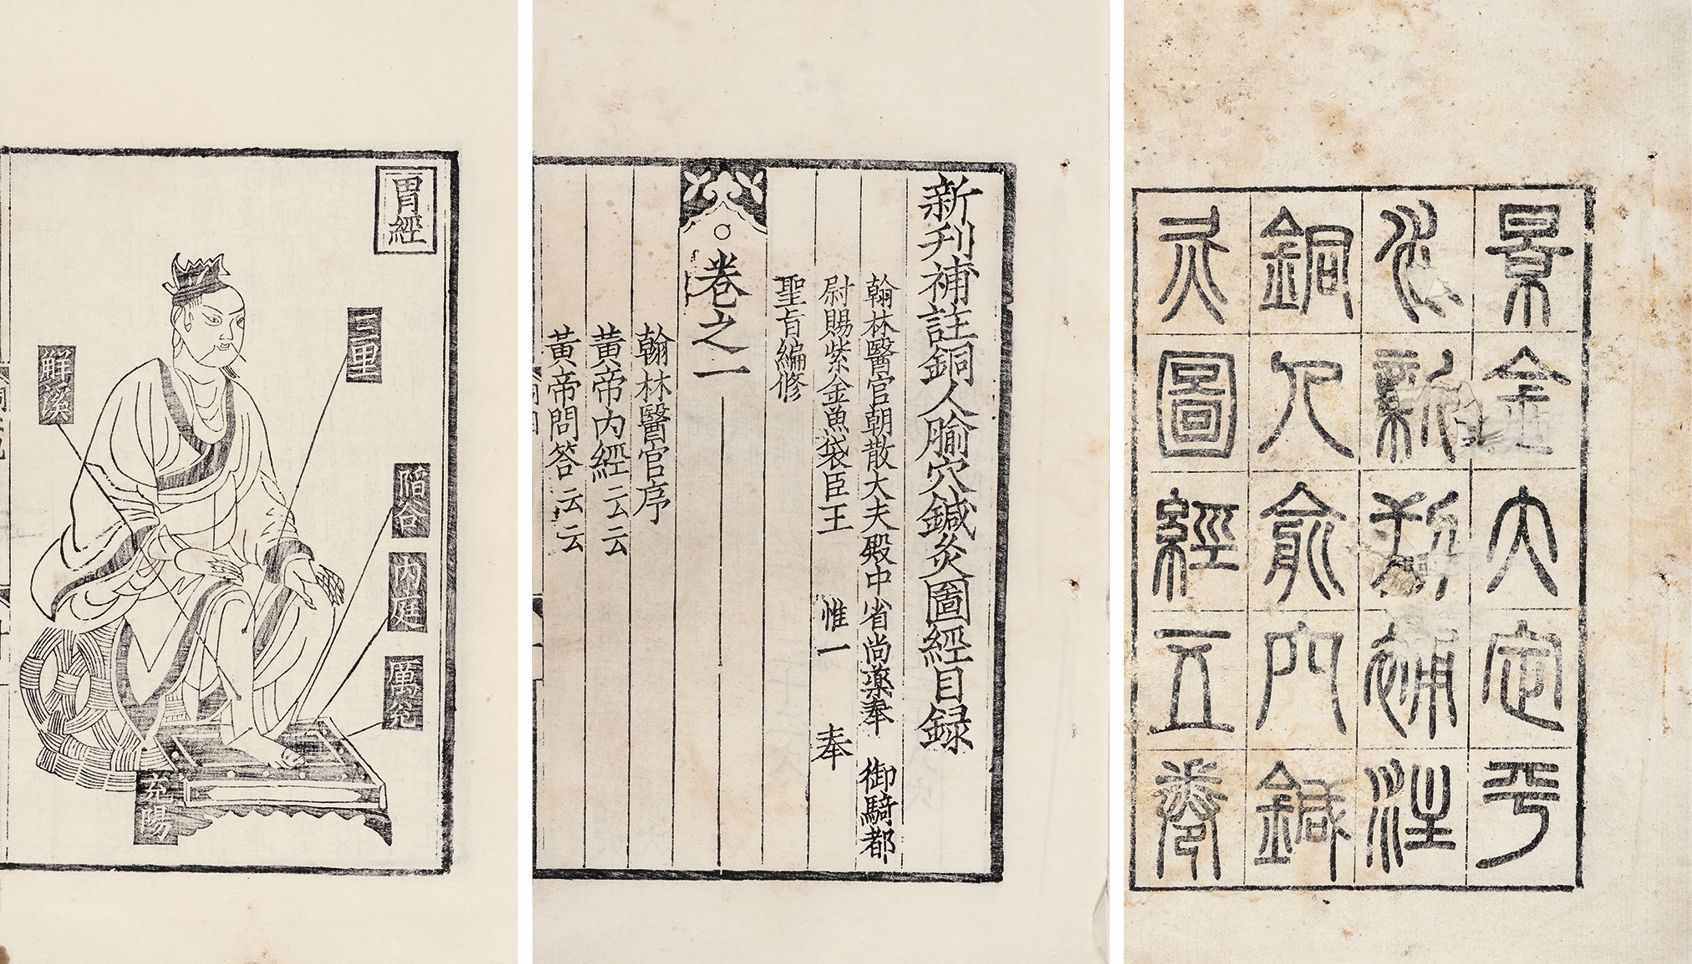 景金大定平
水新刊補注
銅人俞穴鍼
灸圖經五卷
新刋補註銅人腧穴鍼灸圖經目録
翰林醫官朝散大夫殿中省尚藥奉 御騎都
尉賜紫金魚袋臣王 惟一 奉
聖旨編修
卷之一
翰林醫官序
黃帝内經云云
黃帝問答云云
胃經
三里
陷谷
内庭
厲兊
解溪
充陽